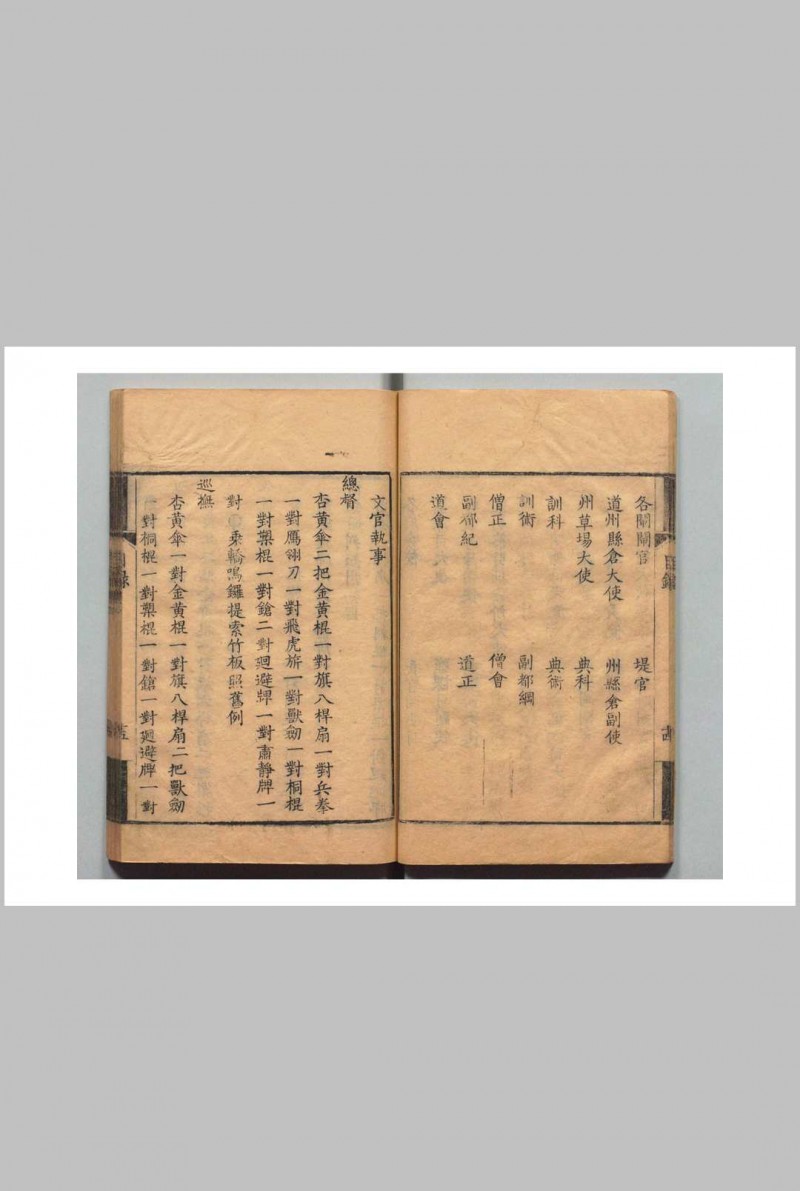 各閘閘官 堤官
道州縣倉大使 州縣倉副使
州草場大使
訓科 典科
訓術 典術
僧正 副都綱
副都紀 僧會
道會 道正
文官執事
總督
杏黃傘二把金黃棍一對旗八桿扇一對兵拳
一對鴈翎刀一對飛虎旂一對獸劒一對桐棍
一對槊棍一對鎗二對廻避牌一對肅靜牌一
對 乗轎鳴鑼提索竹板照舊例
巡撫
杏黃傘一對金黃棍一對旗八桿扇二把獸劒
一對桐棍一對槊棍一對鎗一對廻避牌一對